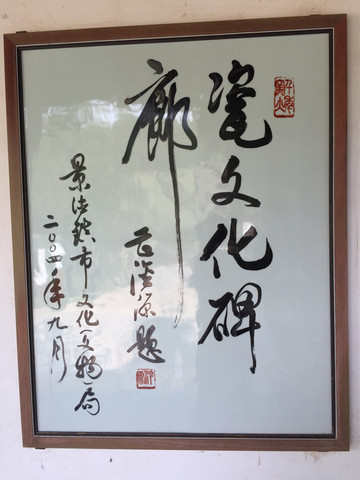 瓷文化碑
廊
题
景德镇市文化(文物)局
二〇〇四年九月